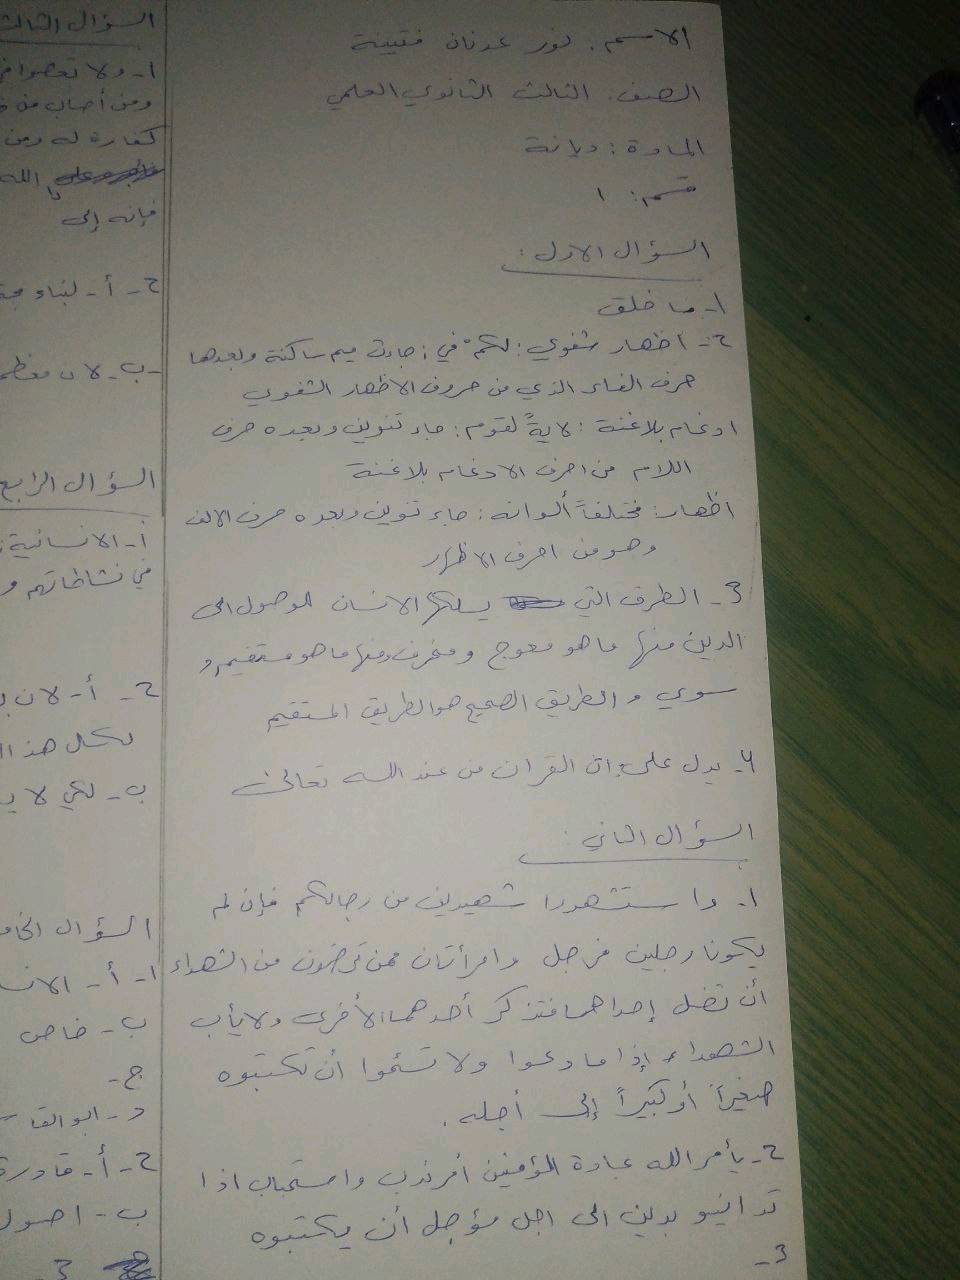 الاسم: نور عدنان قتيبة
الصف: الثالث الثانوي العلمي
المادة: ديانة
قسم: ١
السؤال الاول:
١- ما خلق
٢- اظهار شفوي: لكمْ في: جاءت ميم ساكنة وبعدها
حرف الفاء الذي من حروف الاظهار الشفوي
ادغام بلا غنة: لايةً لقوم: جاء تنوين وبعده حرف
اللام من احرف الادغام بلا غنة
اظهار: مختلفاً ألوانه: جاء تنوين وبعده حرف الالف
وهو من احرف الاظهار
3- الطرق التي يسلكها الانسان للوصول الى
الدين منها ما هو معوج ومنحرف ومنها ما هو مستقيم و
سوي و الطريق الصحيح هو الطريق المستقيم
٤- يدل على ان القران من عند الله تعالى
السؤال الثاني:
١- واستشهدوا شهيدين من رجالكم فإن لم
يكونا رجلين فرجل وامرأتان ممن ترضون من الشهداء
أن تضل إحداهما فتذكر أحدهما الأخرى ولا يأب
الشهداء إذا ما دعوا ولا تسئموا أن تكتبوه
صغيراً أو كبيراً إلى أجله.
٢- يأمر الله عبادة المؤمنين أمر ندب واستحباب اذا
تداينو بدين الى اجل مؤجل أن يكتبوه
3-
السؤال الثالث
١- ولا تعصوا
ومن أصاب من
كفارة له ومن
الله
فإنه إلى
٢- أ- لبناء
ب- لان معظم
السؤال الرابع
أ- الانسانية
في نشاطاتهم و
٢- أ- لان
لكل هذا
ب- لكي لا
السؤال الخا
١- أ-
ب- خاص
ج-
د- ابو القا
٢- أ-
ب- اصول
3